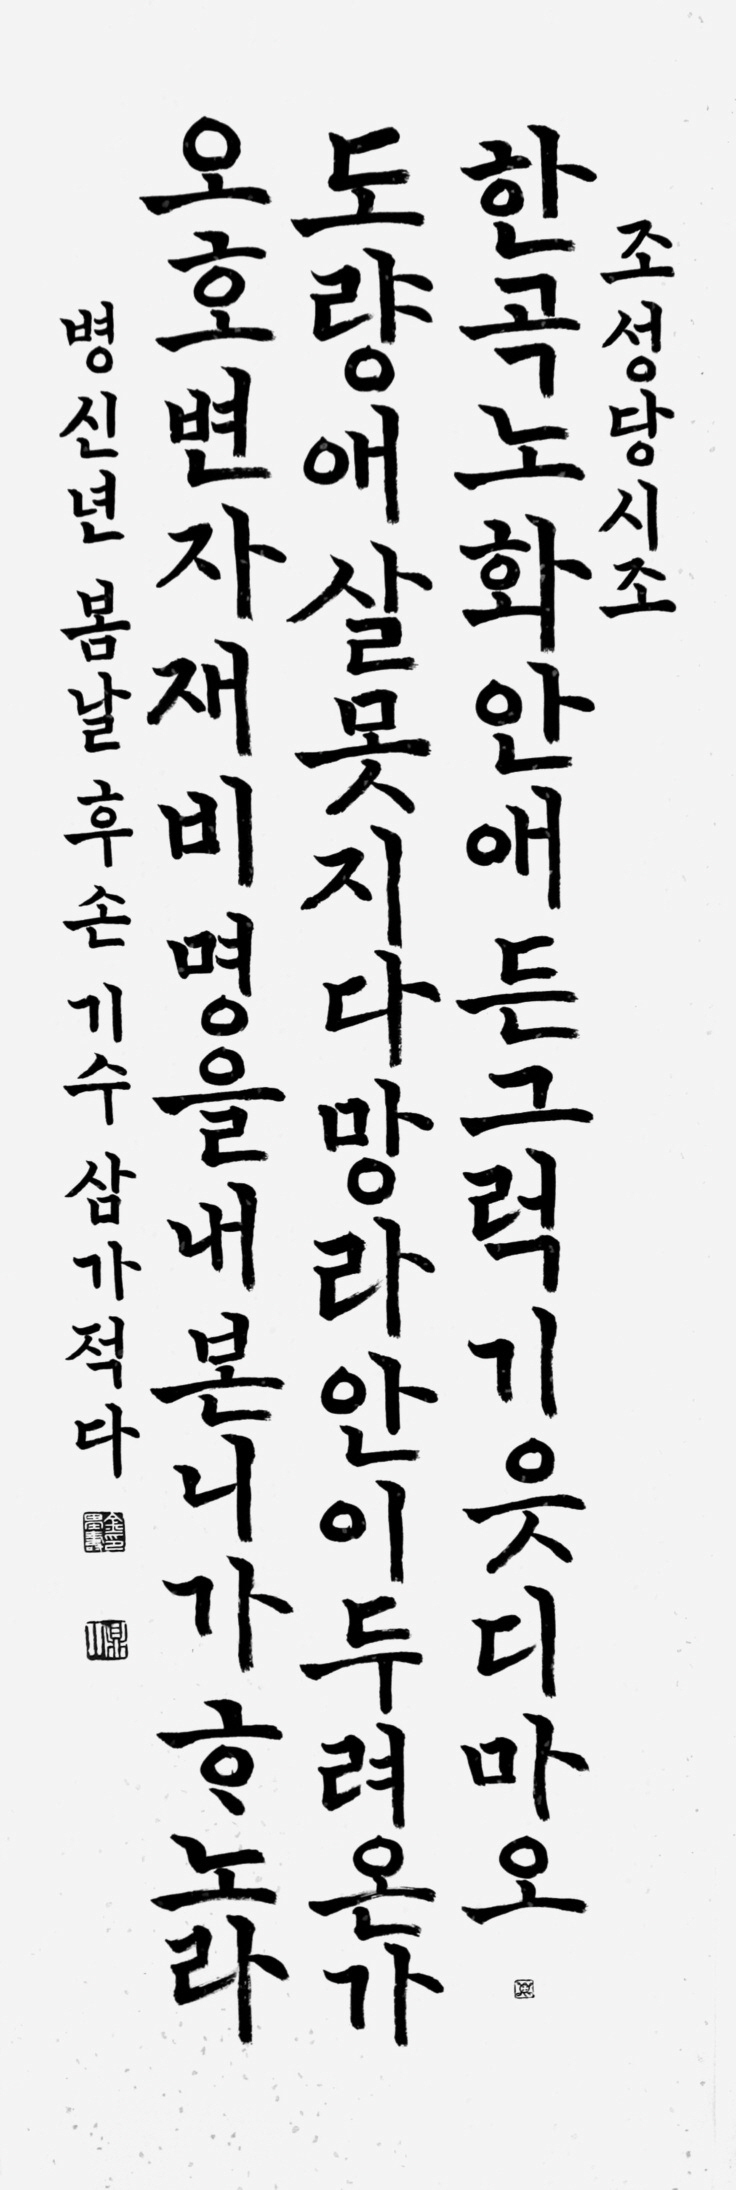 조성당시조
한곡노화안애든그럭기읏디마오
도량애살못지다망라안이두려온가
오호변자재비명을내본니가ᄒᆞ노라
병신년 봄날 후손 기수 삼가적다